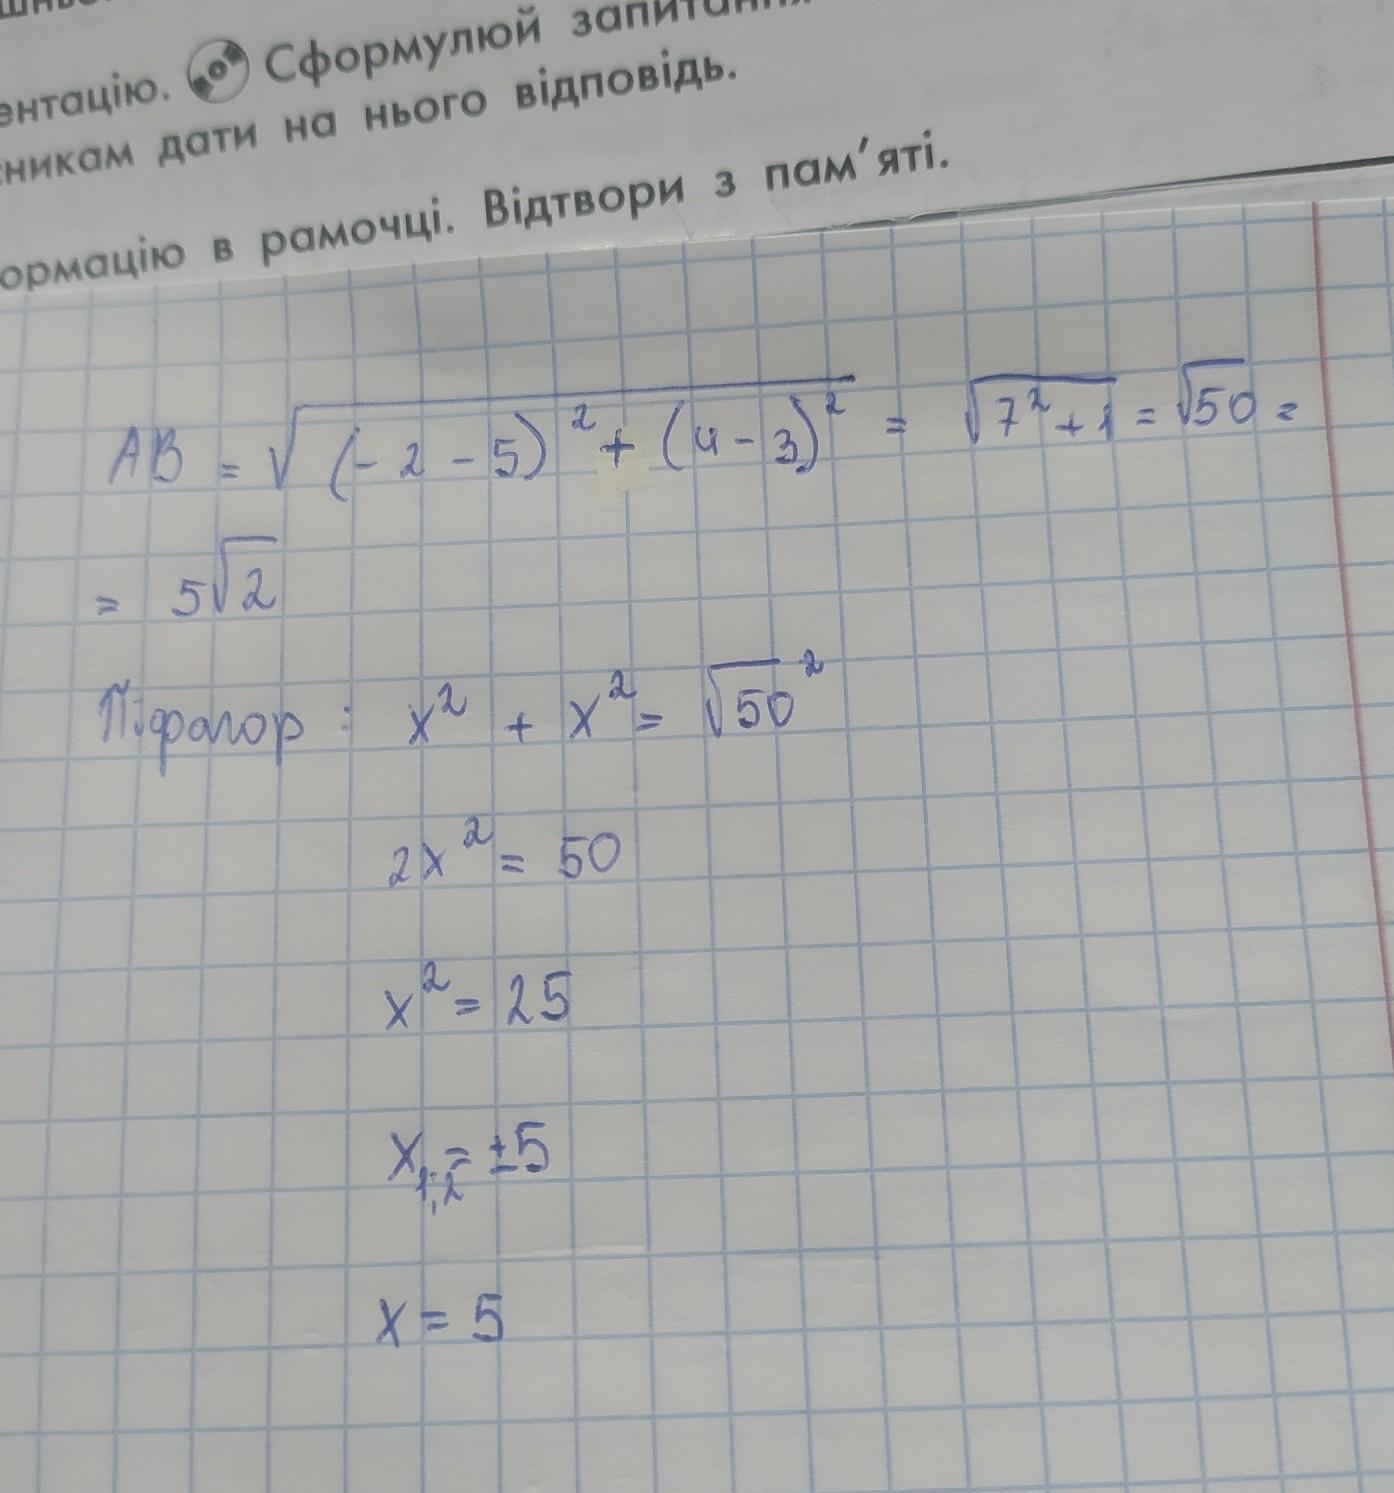 ентацію. Сформулюй запитання
сникам дати на нього відповідь.
ормацію в рамочці. Відтвори з пам'яті.
AB = √((-2-5)² + (4-3)²) = √(7²+1) = √50 =
= 5√2
Піфагор: x² + x² = √50²
2x² = 50
x² = 25
x₁;₂ = ±5
x = 5